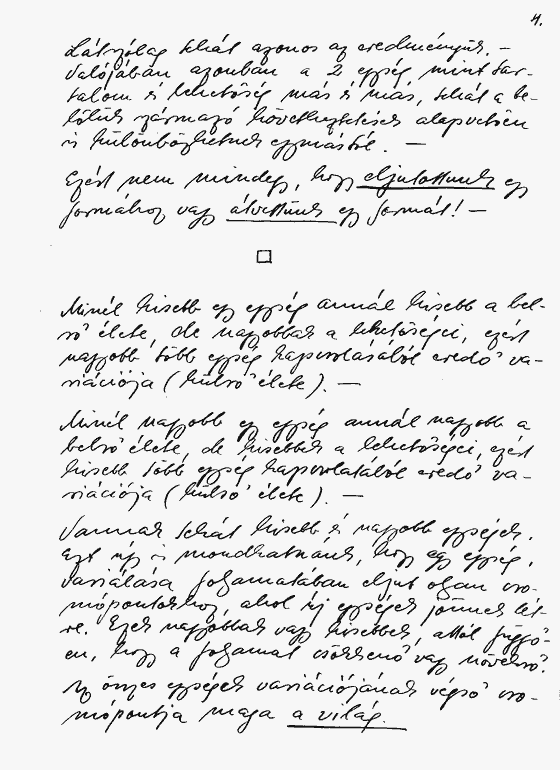 4.
Látszólag tehát azonos az eredményük. —
Valójában azonban a 2 egység mint tar-
talom és lehetőség más és más, tehát a be-
lőlük származó következtetések alapvetően
is különbözhetnek egymástól. —
Ezért nem mindegy, hogy eljutottunk egy
formához vagy átvettünk egy formát! —
Minél kisebb egy egység annál kisebb a bel-
ső élete, de nagyobbak a lehetőségei, ezért
nagyobb több egység kapcsolásából eredő va-
riációja (külső élete). —
Minél nagyobb egy egység annál nagyobb a
belső élete, de kisebbek a lehetőségei, ezért
kisebb több egység kapcsolatából eredő va-
riációja (külső élete). —
Vannak tehát kisebb és nagyobb egységek.
Ezt úgy is mondhatnánk, hogy egy egység,
variálása folyamatában eljut olyan cso-
mópontokhoz, ahol új egységek jönnek lét-
re. Ezek nagyobbak vagy kisebbek, attól függő-
en, hogy a folyamat csökkenő vagy növekvő.
Az összes egységek variációjának végső cso-
mópontja maga a világ.